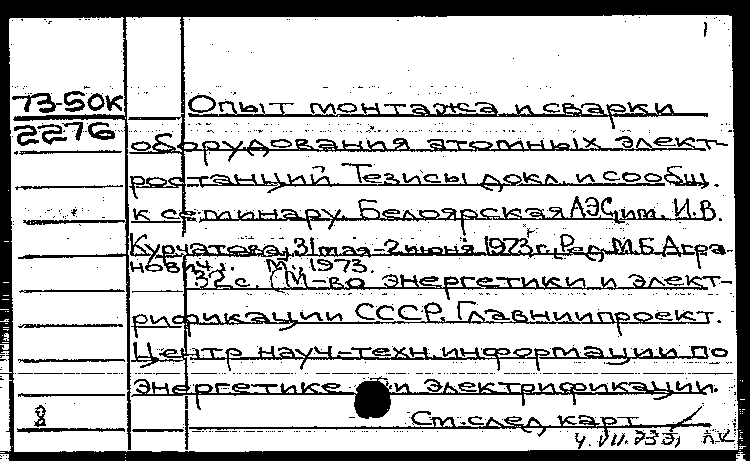 1
73-50К
2276
Опыт монтажа и сварки
оборудования атомных элект-
ростанций. Тезисы докл. и сообщ.
к семинару. Белоярская АЭС им. И.В.
Курчатова, 31 мая-2 июня 1973 г., Ред. М.Б. Агра-
нович. М., 1973.
32 с. (М-во энергетики и элект-
рификации СССР. Главниипроект.
Центр науч.-техн. информации по
энергетике и электрификации.
См. след. карт.